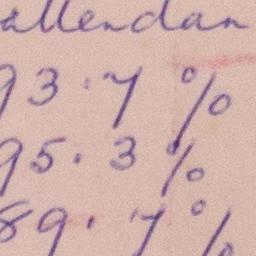 attendan
93.7%
95.3%
89.7%